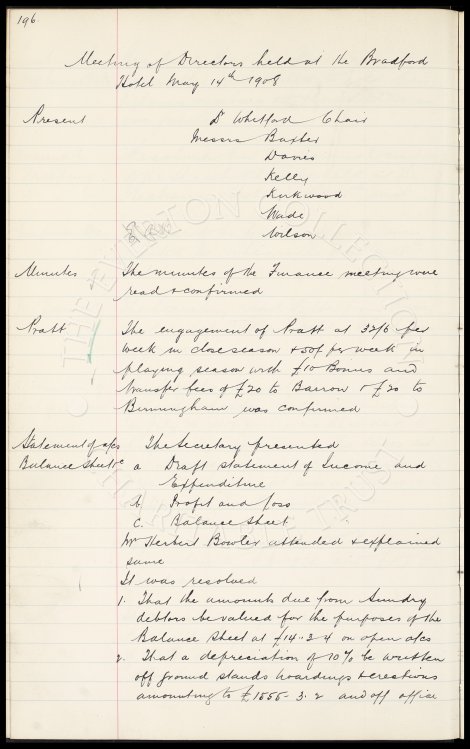 196
Meeting of Directors held at the Bradford
Hotel May 14th 1908
Present Dr Whitford Chair
Messrs Baxter
Davies
Kelly
Kirkwood
Wade
Wilson
Minutes The minutes of the Finance meeting were
read & confirmed
Pratt The engagement of Pratt at 32/6 per
week in close season & 50/ per week in
playing season with £10 Bonus and
transfer fees of £20 to Barrow & £20 to
Birmingham was confirmed
Statement of a/cs The Secretary presented
Balance Sheet &c a Draft statement of Income and
Expenditure
b/ Profit and loss
c. Balance Sheet
Mr Herbert Bowler attended & explained
same
It was resolved
1. That the amounts due from Sundry
debtors be valued for the purposes of the
Balance Sheet at £14-3-4 on open a/cs
2. That a depreciation of 10% be written
off ground stands hoardings & erections
amounting to £1555-3-2 and off office
THE EVERTON COLLECTION
CHARITABLE TRUST